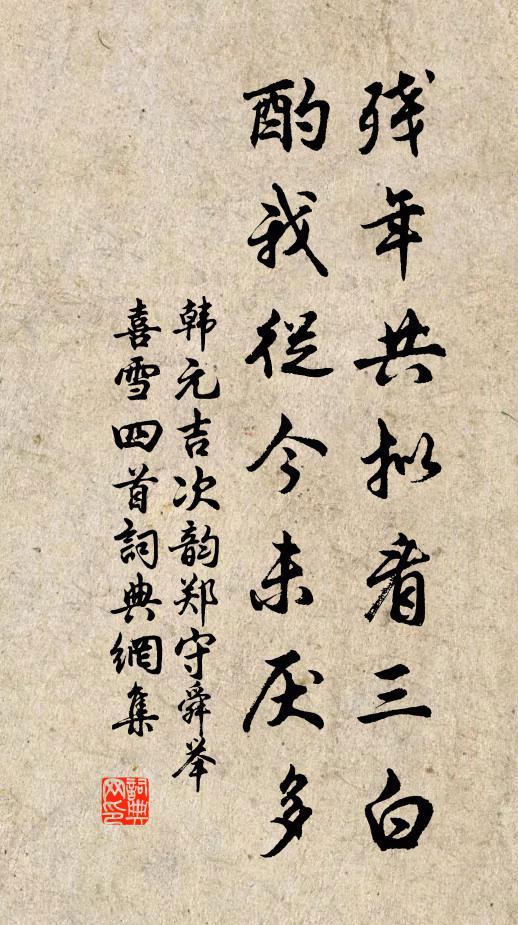 残年共拟看三白
酌我從今未厌多
韩元吉次韵郑守舜举
喜雪四首詞典網集
詞典
网印